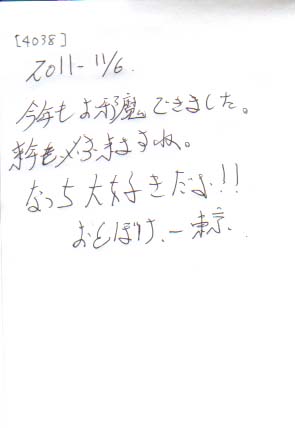 [4038]
2011-11/6.
今年もお邪魔できました。
来年も必ず来ますね。
なっち大好きだよ!!
おとぼけ、ー東京、